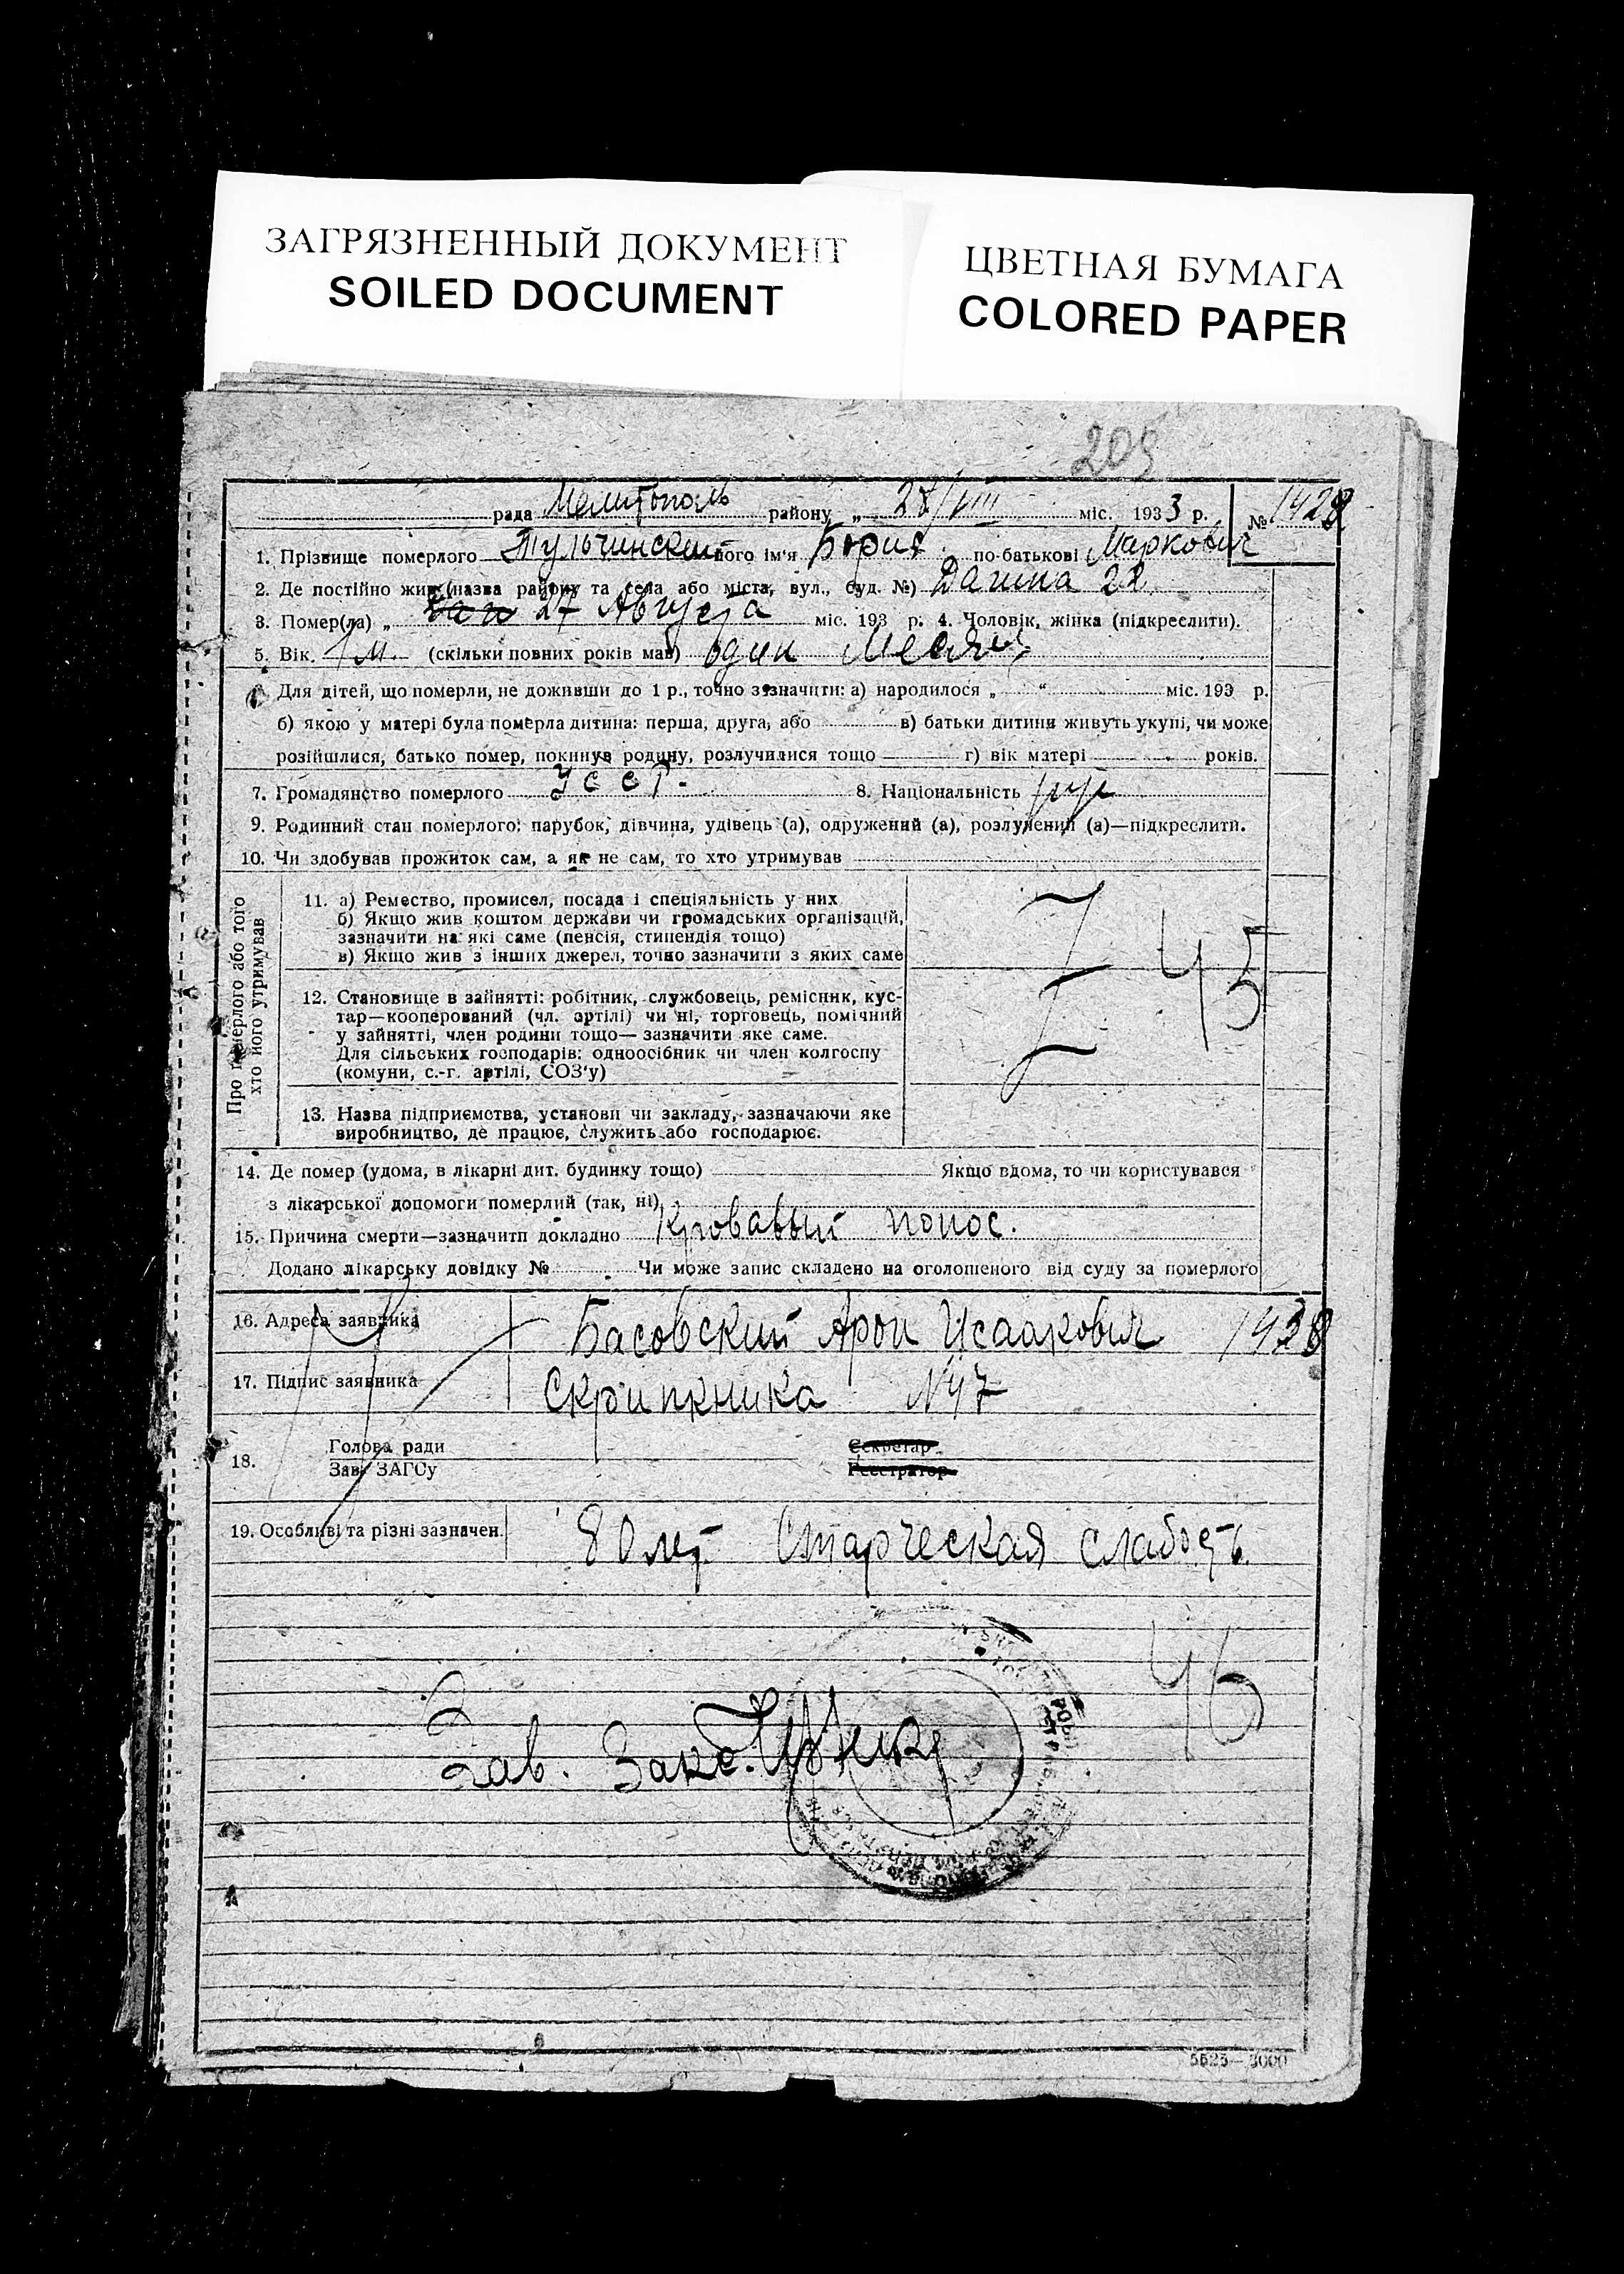 ЗАГРЯЗНЕННЫЙ ДОКУМЕНТ
SOILED DOCUMENT
ЦВЕТНАЯ БУМАГА
COLORED PAPER
209
рада Мелитополь району „ 28/VIII міс. 1933 р. № 1428
1. Прізвище померлого Тульчинский його ім'я Борис по-батькові Маркович
2. Де постійно жив (назва району та села або міста, вул., буд. №) 22
3. Помер(ла) „ 27 Августа міс. 193 р. 4. Чоловік, жінка (підкреслити).
5. Вік. 1 м. (скільки повних років мав) один месяц
6. Для дітей, що померли, не доживши до 1 р., точно зазначити: а) народилося „ “ міс. 193 р.
б) якою у матері була померла дитина: перша, друга, або в) батьки дитини живуть укупі, чи може
розійшлися, батько помер, покинув родину, розлучилися тощо г) вік матері років.
7. Громадянство померлого УССР. 8. Національність
9. Родинний стан померлого: парубок, дівчина, удівець (а), одружений (а), розлучений (а)—підкреслити.
10. Чи здобував прожиток сам, а як не сам, то хто утримував
Про померлого або того
хто його утримував
11. а) Ремество, промисел, посада і спеціяльність у них
б) Якщо жив коштом держави чи громадських організацій,
зазначити на які саме (пенсія, стипендія тощо)
в) Якщо жив з інших джерел, точно зазначити з яких саме
45
12. Становище в зайнятті: робітник, службовець, ремісник, кус-
тар—кооперований (чл. артілі) чи ні, торговець, помічний
у зайнятті, член родини тощо— зазначити яке саме.
Для сільських господарів: одноосібник чи член колгоспу
(комуни, с.-г. артілі, СОЗ'у)
13. Назва підприємства, установи чи закладу, зазначаючи яке
виробництво, де працює, служить або господарює.
14. Де помер (удома, в лікарні дит. будинку тощо) Якщо вдома, то чи користувався
з лікарської допомоги померлий (так, ні)
15. Причина смерти—зазначити докладно Кровавый понос.
Додано лікарську довідку № Чи може запис складено на оголошеного від суду за померлого
16. Адреса заявника Басовский Арон Исаакович 1438
17. Підпис заявника Скрипника №47
18. Голова ради Секретар
Зав. ЗАГСу Реєстратор
19. Особливі та різні зазначен. 80 лет Старческая слабость.
46
Зав. Загс.
5525—3000